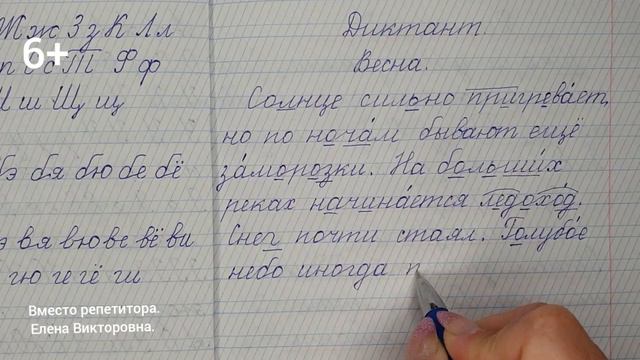 6+
Жж Зз К Лл
Т Фф
Ш ш Щ щ
бя бю бе бё
вя вю ве вё ви
гю ге гё ги
Диктант.
Весна.
Солнце сильно пригревает,
но по ночам бывают ещё
заморозки. На больших
реках начинается ледоход.
Снег почти стаял. Голубое
небо иногда п
Вместо репетитора.
Елена Викторовна.